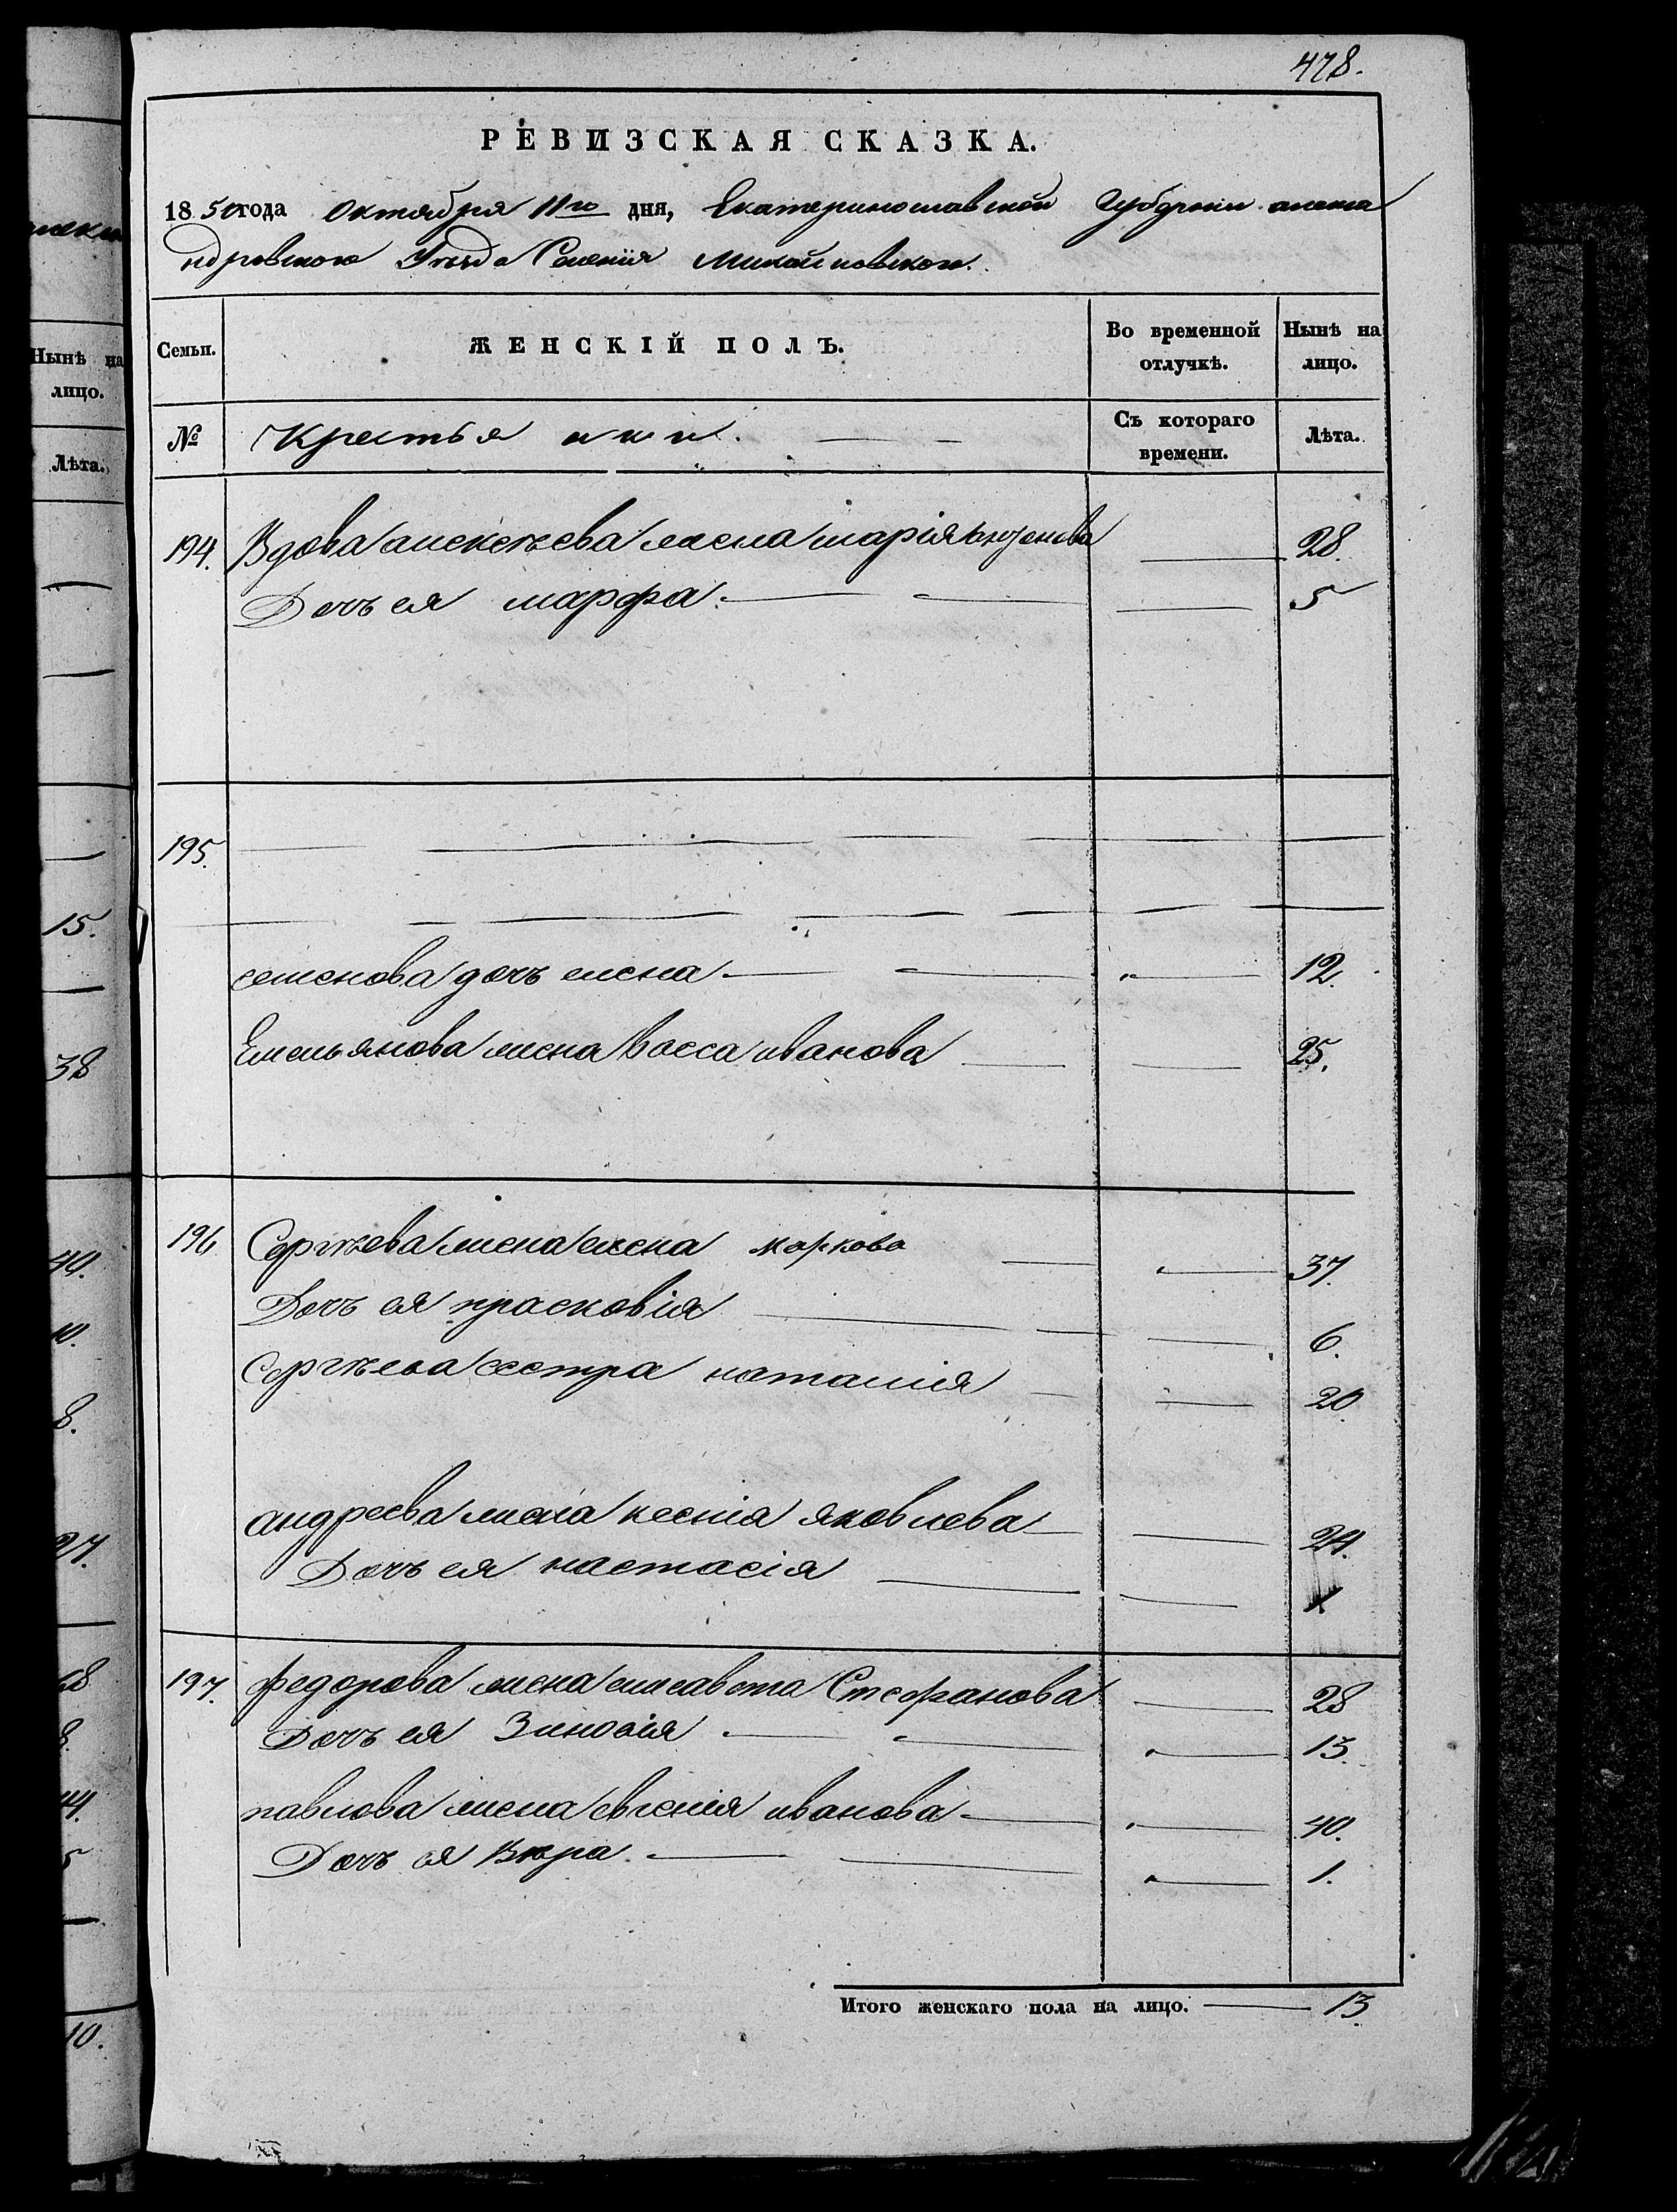 478.
РЕВИЗСКАЯ СКАЗКА.
1850 года Октября 11го дня, Екатеринославской Губернии алекса
ндровского Уѣзда Селенія Михайловского.
Семьи. ЖЕНСКІЙ ПОЛЪ. Во временной отлучкѣ. Нынѣ на лицо.
№ Крестьянки. Съ котораго времени. Лѣта.
194. Вдова алексѣева жена марія 28.
Дочь ея марфа. 5
195.
семенова дочь елена 12.
Емельянова жена Васса иванова 25.
196 Сергѣева жена елена маркова 37.
Дочь ея прасковія 6.
Сергѣева сестра наталия 20.
андреева жена ксения яковлева 24.
Дочь ея настасія 1
197. федорова жена елисавета Стефанова 28
Дочь ея Зиновія 13.
павлова жена евгения иванова 40.
Дочь ея Вѣра. 1.
Итого женскаго пола на лицо. 13.
Нынѣ на лицо.
Лѣта.
15.
38
40.
10.
8.
27.
10.